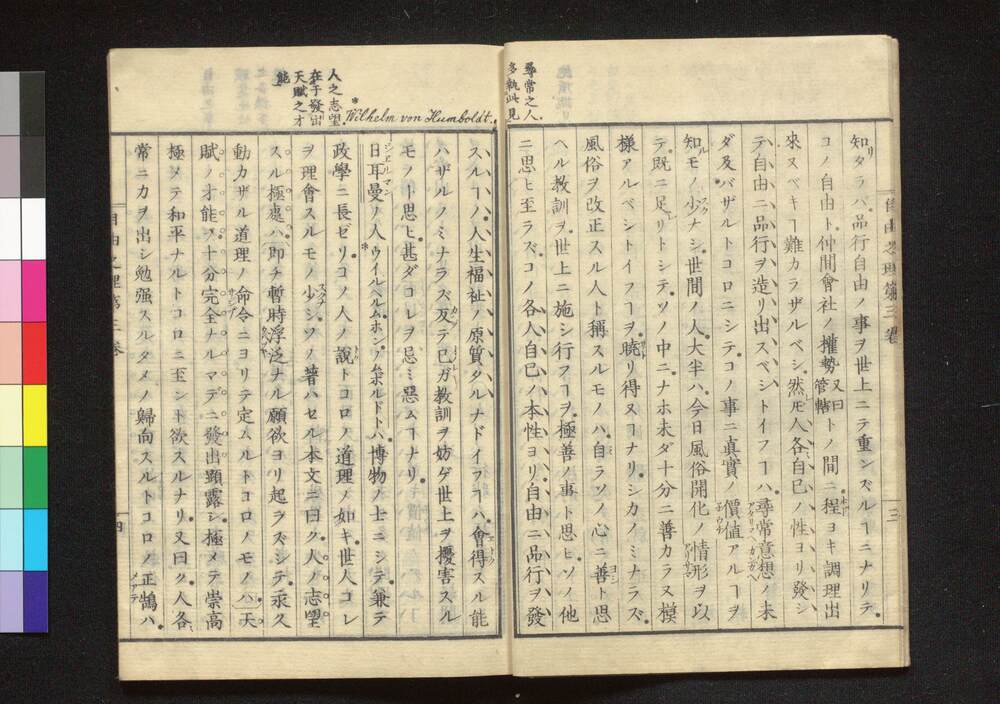 尋常之人
多執此見
自由之理第三卷
三
知タラバ。品行自由ノ事ヲ世上ニテ重ンズルヿニナリテ。
コノ自由ト。仲間會社ノ權勢又曰管轄トノ間ニ。程ヨキ調理出
來スベキヿ難カラザルベシ。然レドモ人各自己ノ性ヨリ發シ
テ自由ニ品行ヲ造リ出スベシトイフヿハ。尋常意想ノ未
ダ及バザルトコロニシテ。コノ事ニ真實ノ價値アルヿヲ
知ルモノ少ナシ。世間ノ人。大半ハ。今日風俗開化ノ情形ヲ以
テ。既ニ足レリトシテ。ソノ中ニナホ未ダ十分ニ善カラヌ模
樣アルベシトイフヿヲ。曉リ得ヌヿナリ。シカノミナラズ。
風俗ヲ改正スル人ト稱スルモノハ。自ラソノ心ニ善ト思
ヘル教訓ヲ。世上ニ施シ行フヿヲ。極善ノ事ト思ヒ。ソノ他
ニ思ヒ至ラズ。コノ各人自己ノ本性ヨリ自由ニ品行ヲ發
人之志望
在于發出
天賦之才
能
*Wilhelm von Humboldt.
スルヿノ。人生福祉ノ原質タルナドイフヿハ。會得スル能
ハザルノミナラズ。反テ已ガ教訓ヲ妨ゲ世上ヲ擾害スル
モノト思ヒ。甚ダコレヲ忌ミ惡ムヿナリ。
日耳曼ノ人ウイルヘルム。ホン。ノムボルドトハ。博物ノ士ニシテ。兼テ
政學ニ長ゼリ。コノ人ノ說トコロノ道理ノ如キ。世人コレ
ヲ理會スルモノ少シ。ソノ著ハセル本文ニ曰ク。人ノ志望
スル極處ハ。即チ暫時浮泛ナル願欲ヨリ起ラズシテ。永久
動カザル道理ノ命令ニヨリテ定ムルトコロノモノハ。天
賦ノ才能ヲ。十分完全ナルマデニ。發出顯露シ。極メテ崇高
極メテ和平ナルトコロニ至ント欲スルナリ。又曰ク。人各
常ニカヲ出シ勉强スルタメノ歸向スルトコロノ正鵠ハ。
自由之理第三卷
四